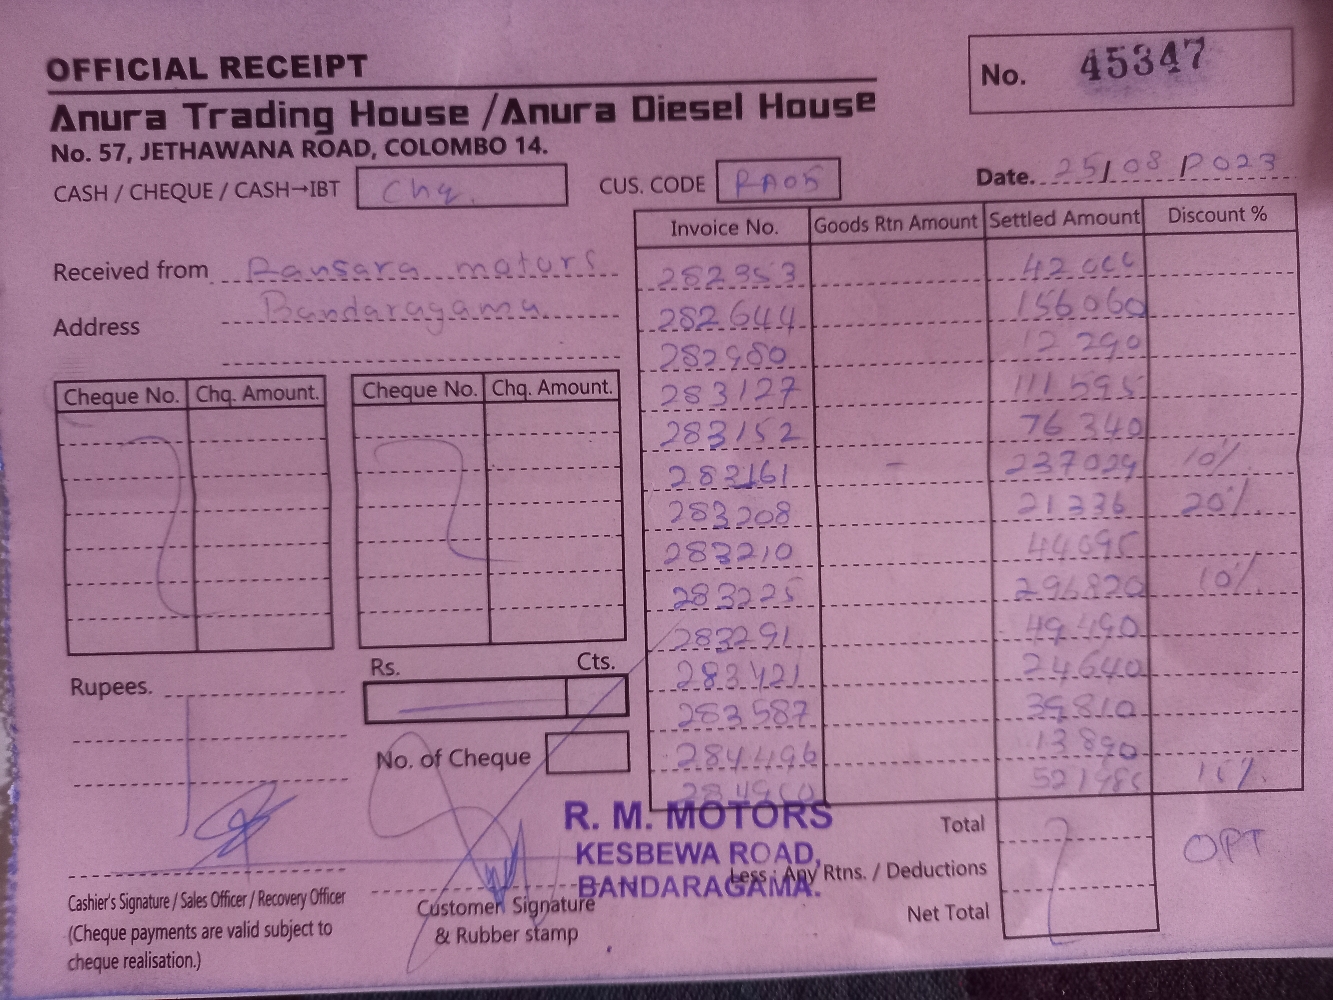 OFFICIAL RECEIPT
No. 45347
Anura Trading House / Anura Diesel House
No. 57, JETHAWANA ROAD, COLOMBO 14.
CASH / CHEQUE / CASH→IBT Chq.
CUS. CODE RA05
Date. 25/08/2023
Invoice No. Goods Rtn Amount Settled Amount Discount %
Received from Ransara motors
Address Bandaragama
282353
282644 156060
282980 12 290
283127 111 595
283152 76 340
283161 - 237029 10%
283208 21336 20%
283210 44695
283225 296820 10%
283291 49 490
283421 24640
283587 39810
284496 13890
Cheque No. Chq. Amount.
Cheque No. Chq. Amount.
Rupees.
Rs. Cts.
No. of Cheque
R. M. MOTORS
KESBEWA ROAD,
BANDARAGAMA.
Total
Less : Any Rtns. / Deductions
Net Total
OPT
Cashier's Signature / Sales Officer / Recovery Officer
(Cheque payments are valid subject to
cheque realisation.)
Customer Signature
& Rubber stamp